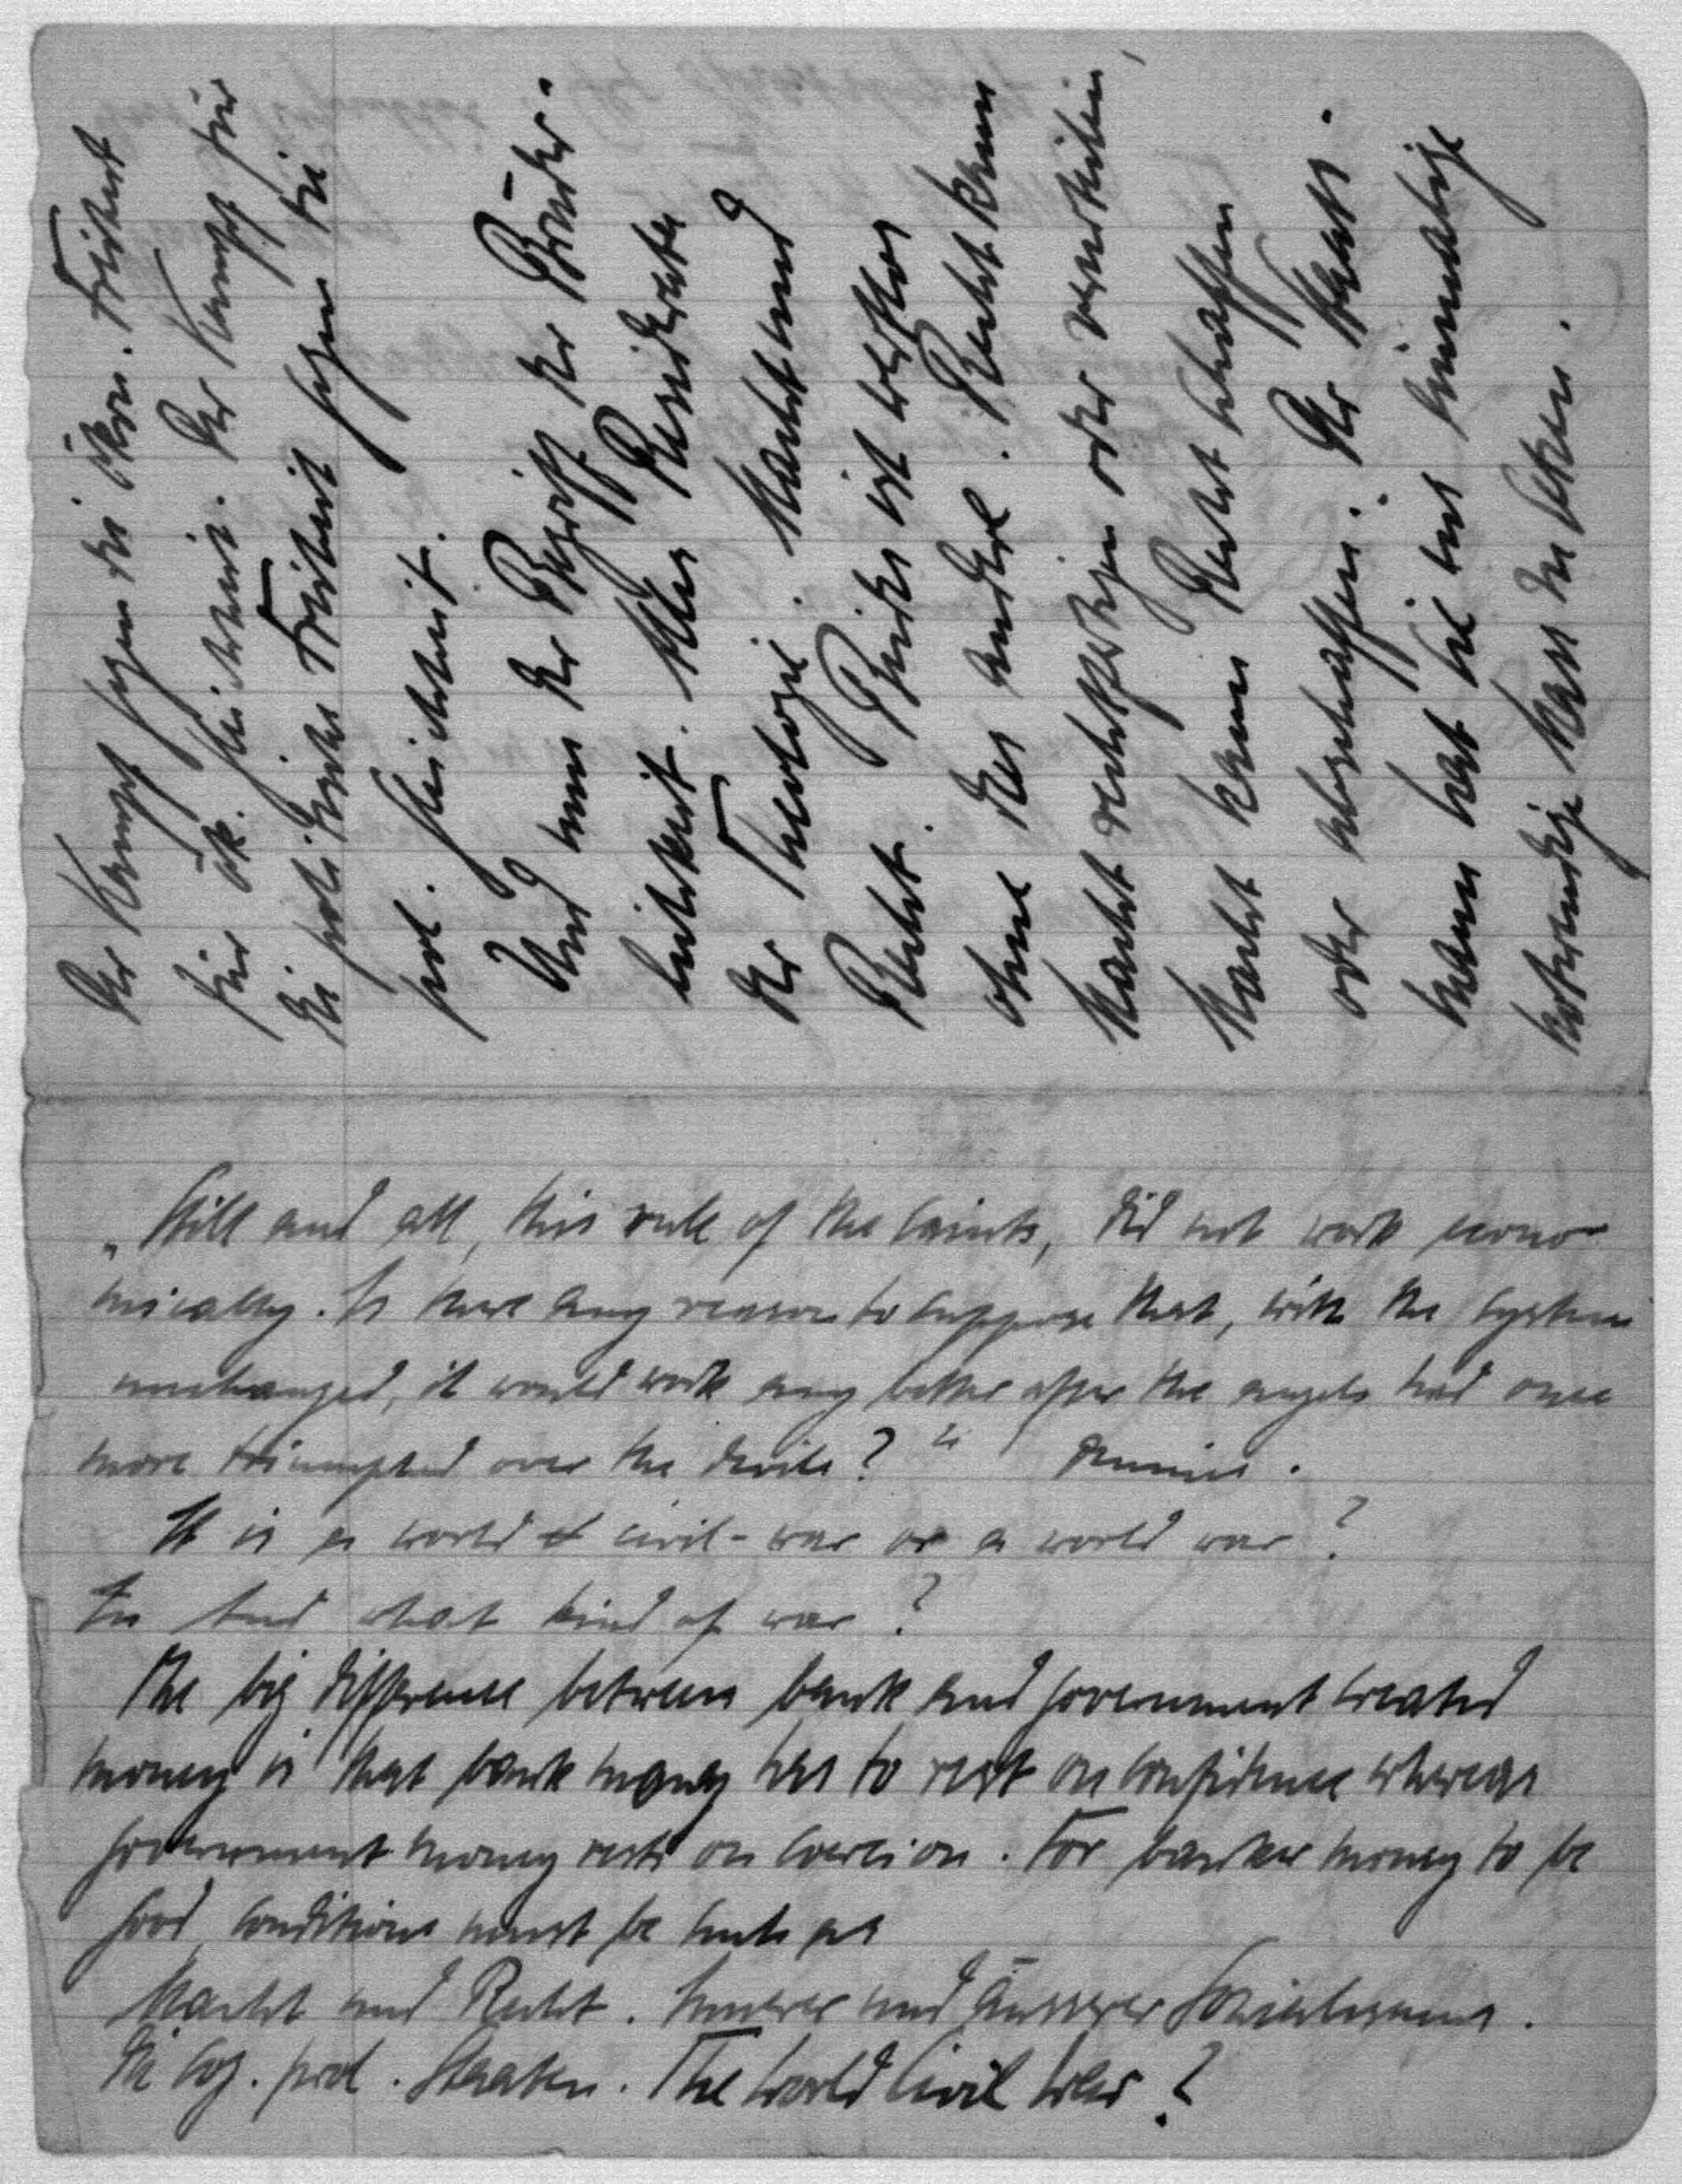 Der Kampf gegen die ökon. Freiheit
für ök. Gleichheit. Der Kampf für
die politische Freiheit gegen die
pol. Gleichheit.
Und nun der Begriff der Brüder-
lichkeit. Alles
der Theologie. Macht und
Recht. Beides ist wertlos
ohne das andere. Recht kann
Macht rechtfertigen oder verurteilen,
Macht kann Recht schaffen
oder abschaffen. Der Staat.
wann hat er das
notwendige Mass des
„Still and all, this rule of the Saints, did not work econo-
mically. Is there any reason to suppose that, with the system
unchanged, it would work any better after the angels had once
more triumphed over the devils?" Dennis.
It is a world civil-war or a world war?
And what kind of war?
The big difference between bank and government created
money is that bank money has to rest on confidence whereas
government money rests on coercion. For banker money to be
good, conditions must be such as
Macht und Recht. Innerer und äusserer Sozialismus.
Die soz. prol. Staaten. The World Civil War?